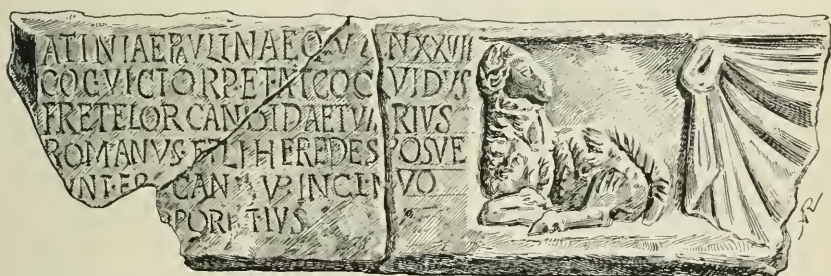 ATINIAEPAVLINAEQ·V NXXVIII
COCVICTORPETALCOC VIDVS
FRETELORCANDIDAETVA RIVS
ROMANVS·ETLIHEREDES POSVE
VNT·ER CAN INGEN VO
PORI TIVS